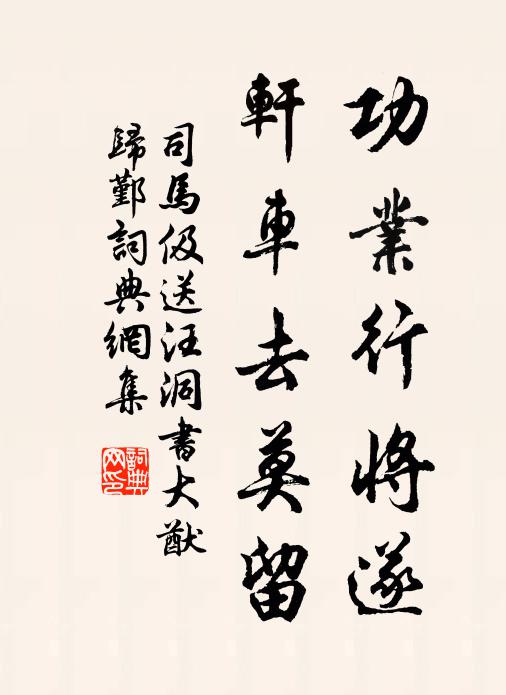 功業行將遂
軒車去莫留
司馬伋送汪洞書大猷
歸鄞詞典網集
詞典網印